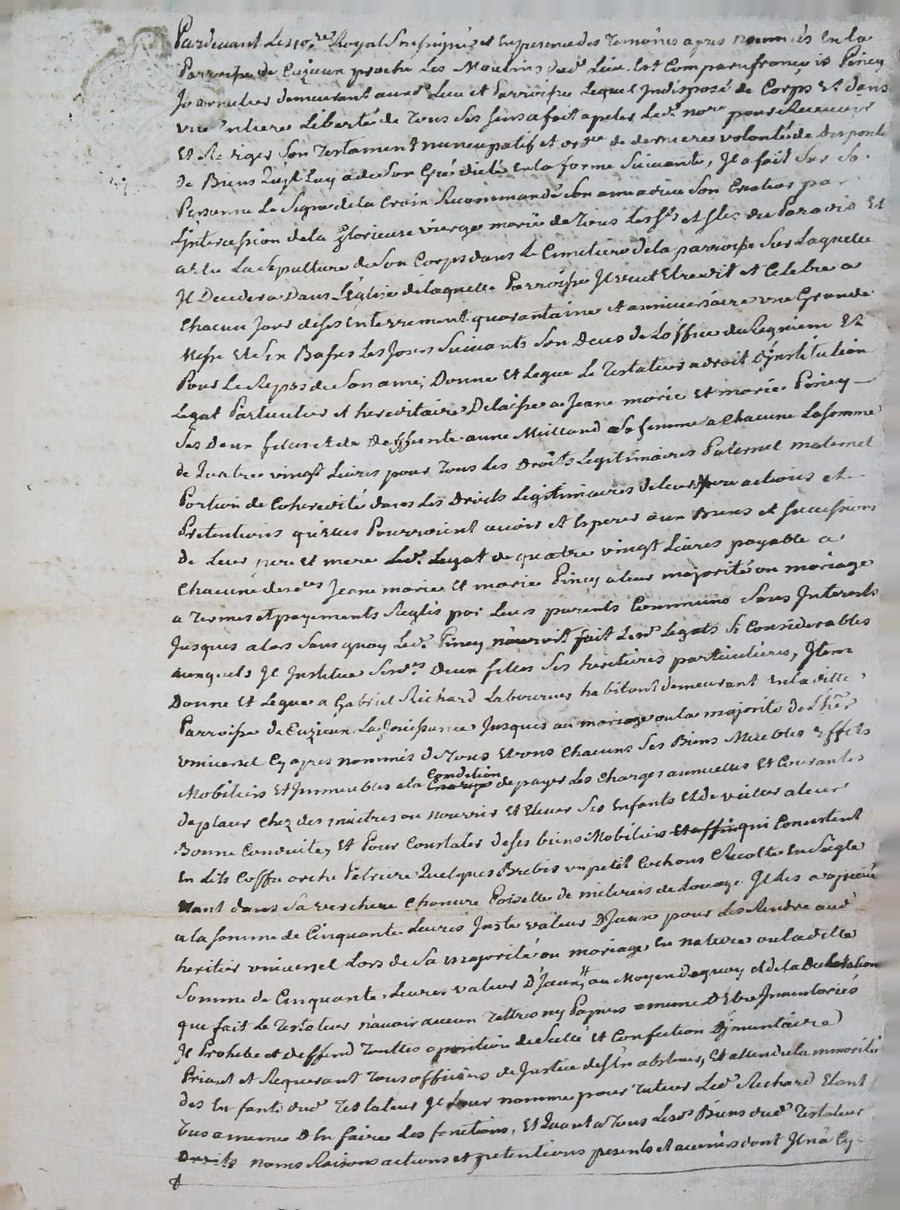 Pardevant Le no.re Royal Soussigné et En presence des Temoins apres nommés En la
Parroisse de Cuzieu proche Les Moulins dud. Lieu Est Comparu françois Piney
Journalier demeurant aud. Lieu et Parroisse Lequel Indisposé de Corps Et dans
une Entiere Liberté de Tous Ses Sens a fait apeler Led. no.re pour Recevoir
Et Rediger Son Testament nuncupatif et ord.ce de derniere volonté de disposer
de Biens quyl Luy a de Son Gré dicté En la forme Suivante, Il a fait Sur Sa
Personne Le Signe de la Croix Recommandé Son ame a dieu Son Createur par
L'intercession de la Glorieuse vierge marie de Tous Les S.ts et S.tes du Paradis Et
a Elu La Sepulture de Son Corps dans Le Cimetiere de la parroisse Sur Laquelle
Il Decedera Dans L'Eglise de laquelle Parroisse Il veut Etre dit et Celebré a
Chacun Jour de Ses Enterrement quarantaine et anniversaire une Grande
Messe Et Six Basses Les Jours Suivants Son Deces de L'office du Requiem Et
Pour Le Repos de Son ame; Donne Et Legue Le Testateur a droit d'institution
Legat Particulier et hereditaire Delaisse a Jeane marie Et marie Piney
Ses Deux filles et de deffunte anne Milland Sa femme a Chacune La Somme
de Quatre vingt Livres pour Tous Les Droits Legitimaires Paternel maternel
Portion de Coheredité dans Les Droits Legitimaires de leur actions et
Pretentions qu'elles Pourroient avoir et Esperer aux Biens et Successions
de Leur pere et mere Led. Legat de quatre vingt Livres payable a
Chacune des.tes Jeane marie Et marie Piney a leur majorité ou mariage
a Termes et payements Reglés par Leurs parents Communs Sans Interests
Jusques alors Sans quoy Led. Piney n'auroit fait Lesd. Legats Si Considerables
auxquels Il Institue Sesd.tes Deux filles Ses heritieres particulieres, Item
Donne Et Legue a Gabriel Richard Laboureur habitant demeurant En la ditte
Parroisse de Cuzieu La Jouissance Jusques au mariage ou la majorité de L'her.
universel Cy apres nommé de Tous Et uns Chacuns Ses Biens Meubles Effets
Mobiliers Et Immeubles a la Condition de payer Les Charges annuelles Et Courantes
de placer Chez des maitres ou nourrir Et Elever Ses Enfants Et de veiller a leur
Bonne Conduite, Et Pour Constater de Ses biens Mobiliers qui Consistent
En Lits Coffre arche Petriere Quelques Brebis un petit Cochons Recolte En Seigle
dans Sa verchere Chanvre Il Les a apretié
a la Somme de Cinquante Livres Juste valeur D'Iceux pour Les Rendre aud.
heritier universel Lors de Sa majorité ou mariage En nature ou ladite
Somme de Cinquante Livres valeur D'Iceux, au Moyen de quoy et de la Declaration
que fait Le Testateur n'avoir aucun Tittres ny Papiers a meme D'Etre Inventoriés
Il Prohibe et deffend Touttes aposition de Scellé et Confection D'Inventaire
Priant et Requerant Tous officiers de Justice de S'en abstenir, Et attendu la minorité
des Enfants dud. Testateur Il Leur nomme pour Tuteur Led. Richard Etant
Tres a meme D'En faire Les fonctions, Et Quant a Tous Lesd. Biens dud. Testateur
Droits noms Raisons actions et pretentions presents et avenirs dont Il n'a Cy